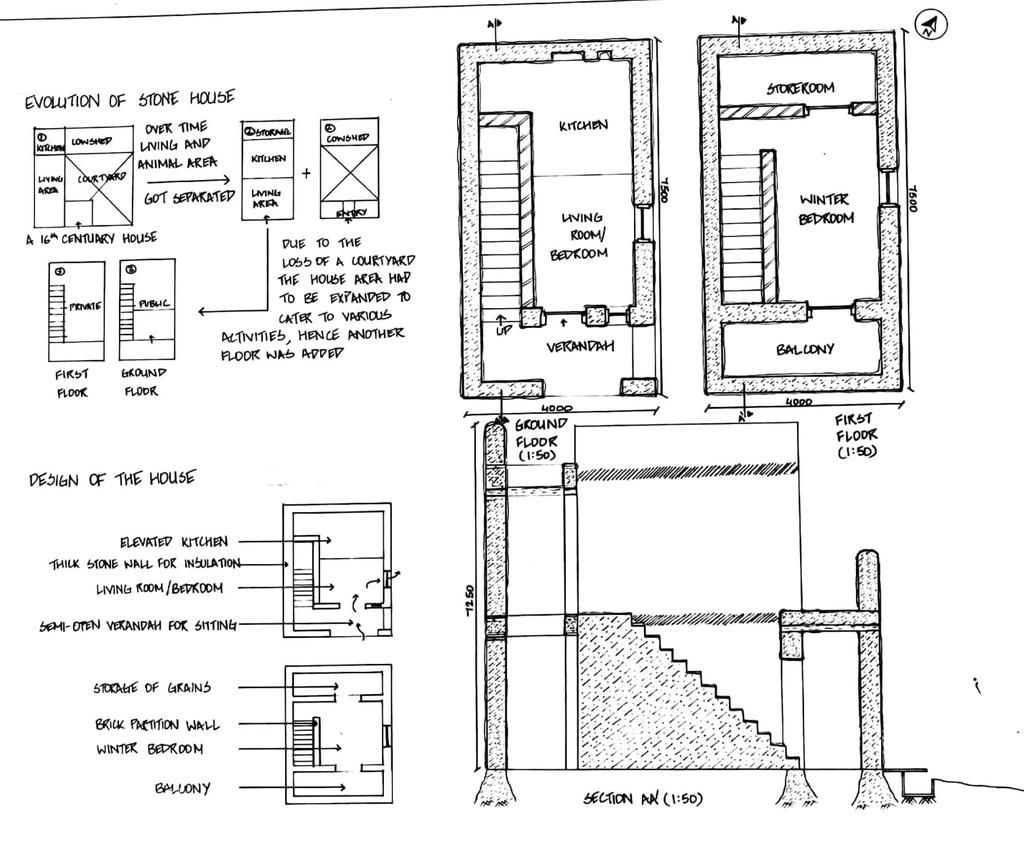 EVOLUTION OF STONE HOUSE
① KITCHEN
COWSHED
LIVING
AREA
COURTYARD
A 16TH CENTUARY HOUSE
OVER TIME
LIVING AND
ANIMAL AREA
GOT SEPARATED
② STORAGE
KITCHEN
LIVING
AREA
+
②
COWSHED
ENTRY
DUE TO THE
LOSS OF A COURTYARD
THE HOUSE AREA HAD
TO BE EXPANDED TO
CATER TO VARIOUS
ACTIVITIES, HENCE ANOTHER
FLOOR WAS ADDED
PRIVATE
FIRST
FLOOR
③
PUBLIC
GROUND
FLOOR
DESIGN OF THE HOUSE
ELEVATED KITCHEN
THICK STONE WALL FOR INSULATION
LIVING ROOM/BEDROOM
SEMI-OPEN VERANDAH FOR SITTING
STORAGE OF GRAINS
BRICK PARTITION WALL
WINTER BEDROOM
BALCONY
A
KITCHEN
LIVING
ROOM/
BEDROOM
UP
VERANDAH
7500
4000
A'
GROUND
FLOOR
(1:50)
A
N
STOREROOM
WINTER
BEDROOM
BALCONY
7500
4000
A'
FIRST
FLOOR
(1:50)
7250
SECTION AA' (1:50)